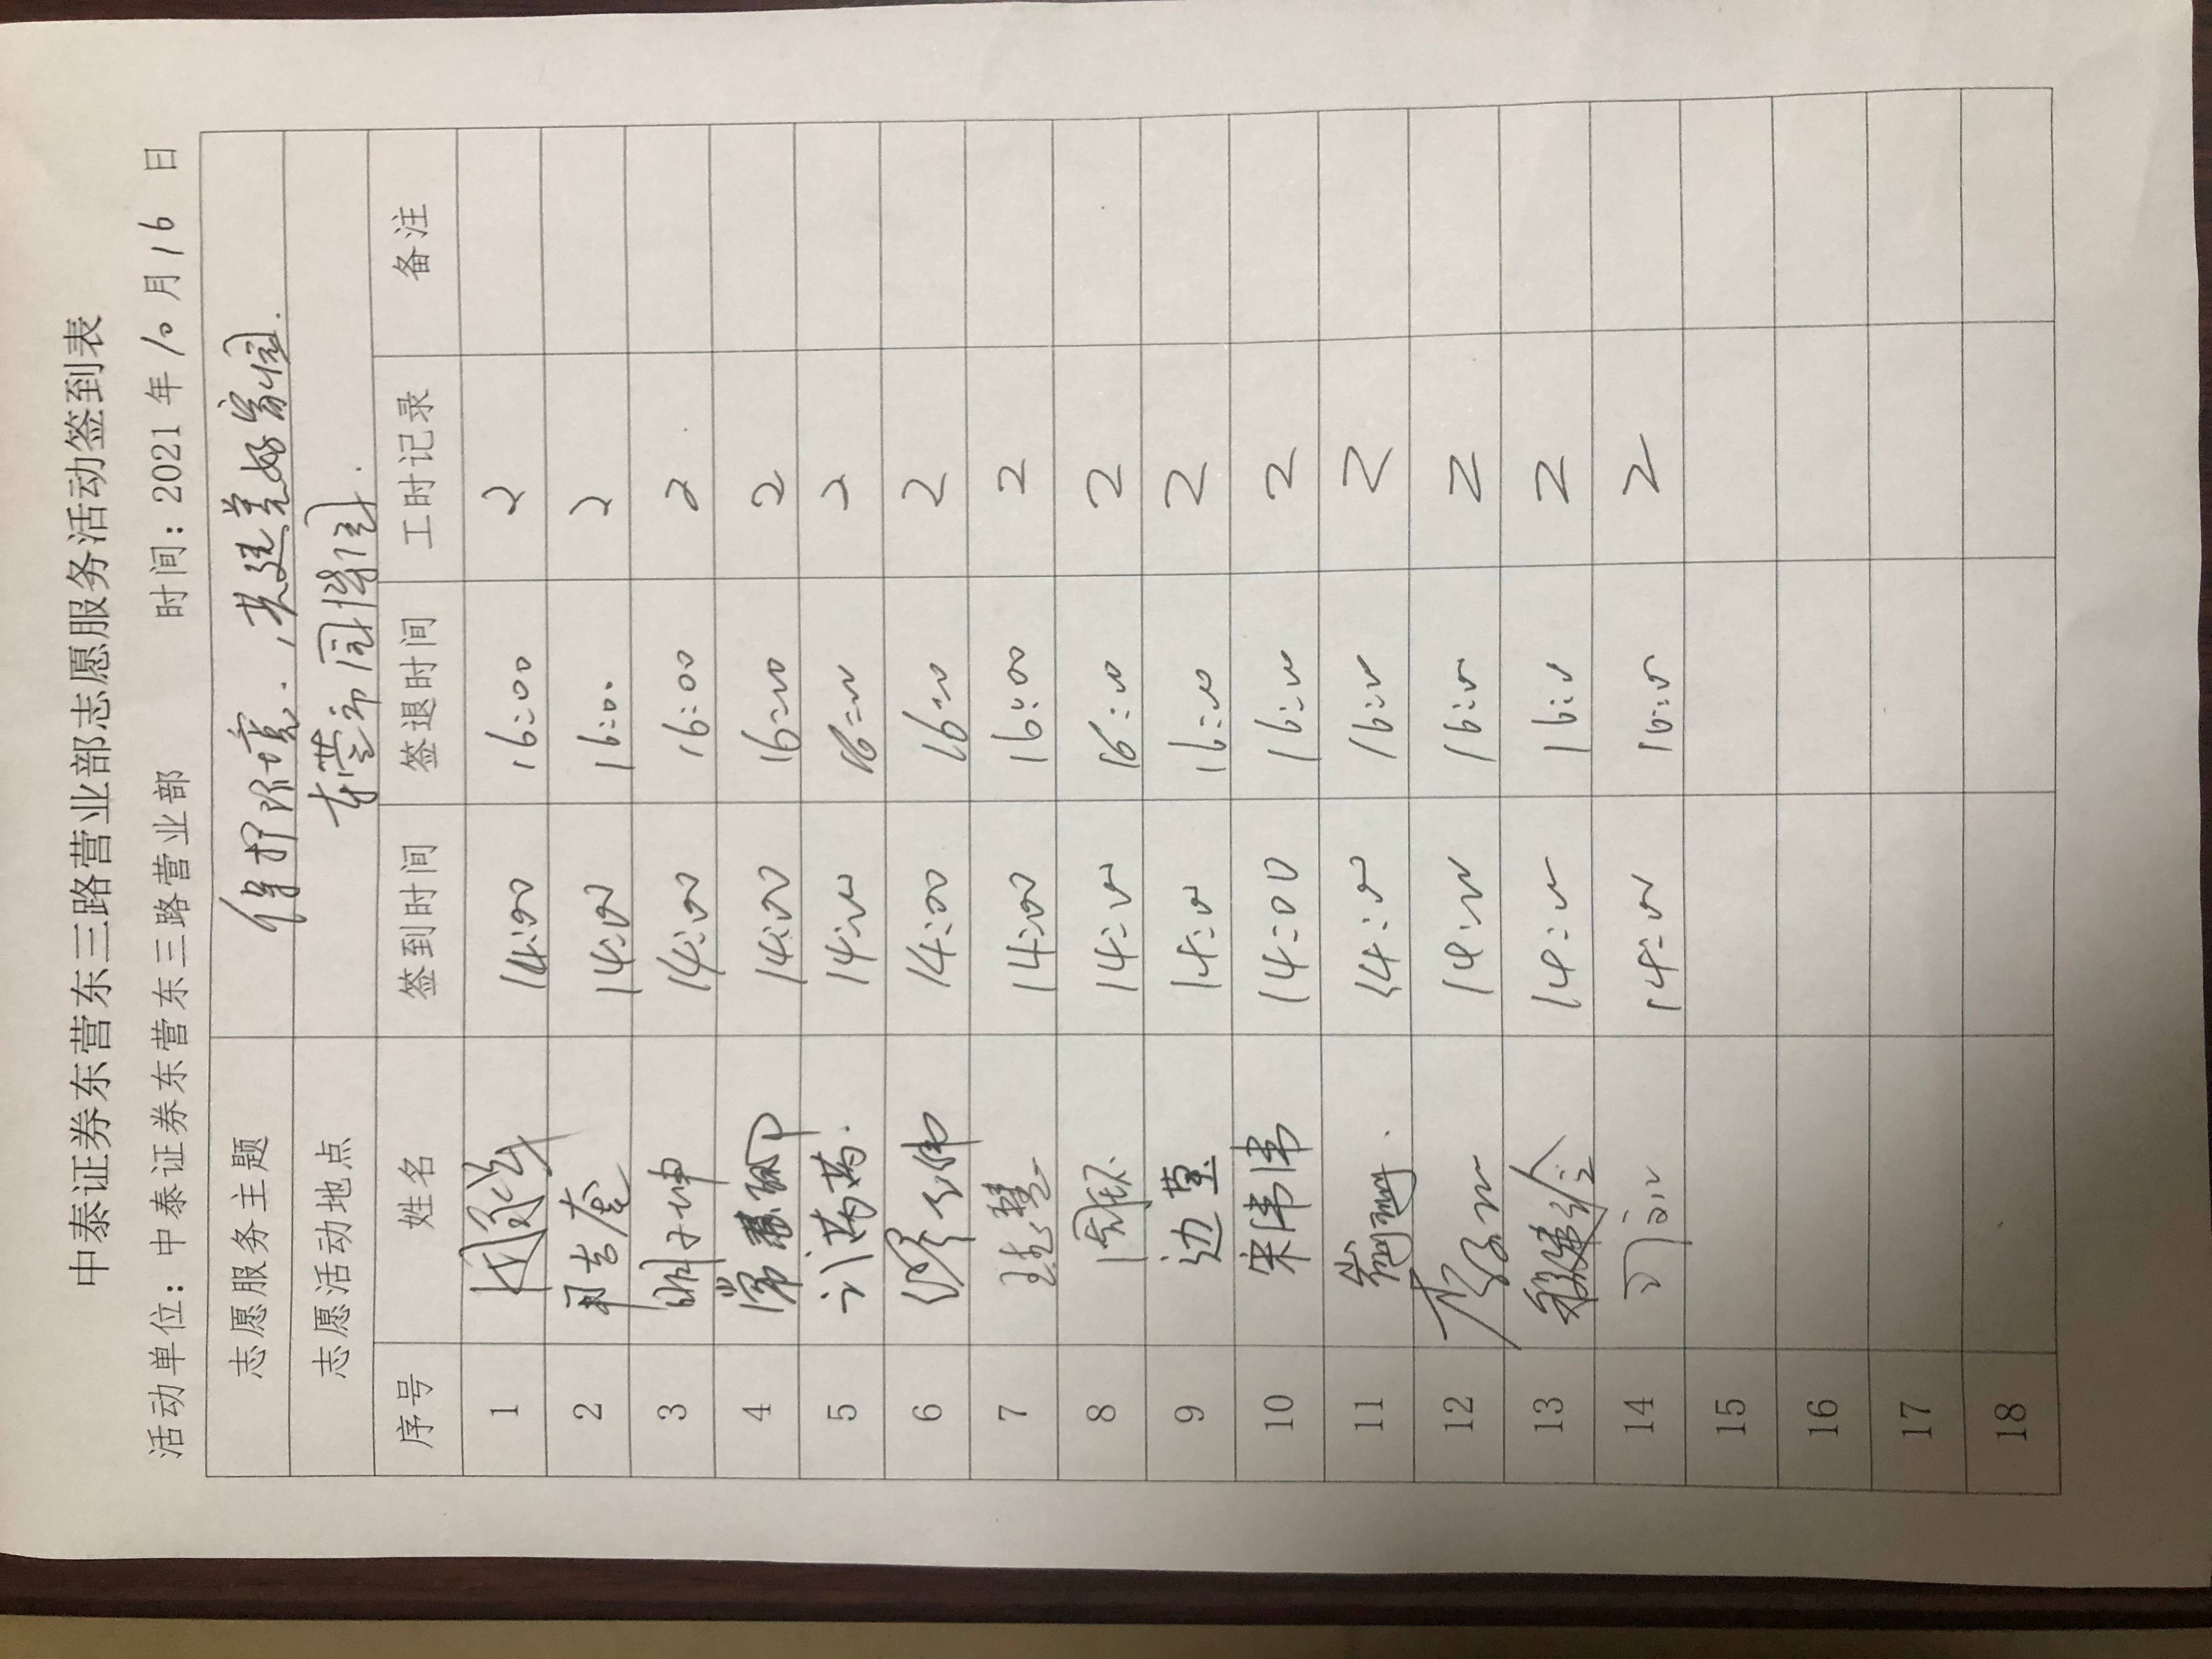 中泰证券东营东三路营业部志愿服务活动签到表
活动单位：中泰证券东营东三路营业部 时间：2021年10月16日
志愿服务主题 保护环境，共建美好家园.
志愿活动地点 东营市园博园.
序号 姓名 签到时间 签退时间 工时记录 备注
1 14:00 16:00 2
2 14:00 16:00 2
3 14:00 16:00 2
4 14:00 16:00 2
5 14:00 16:00 2
6 14:00 16:00 2
7 14:00 16:00 2
8 14:00 16:00 2
9 边莹 14:00 16:00 2
10 宋伟伟 14:00 16:00 2
11 14:00 16:00 2
12 14:00 16:00 2
13 14:00 16:00 2
14 14:00 16:00 2
15
16
17
18